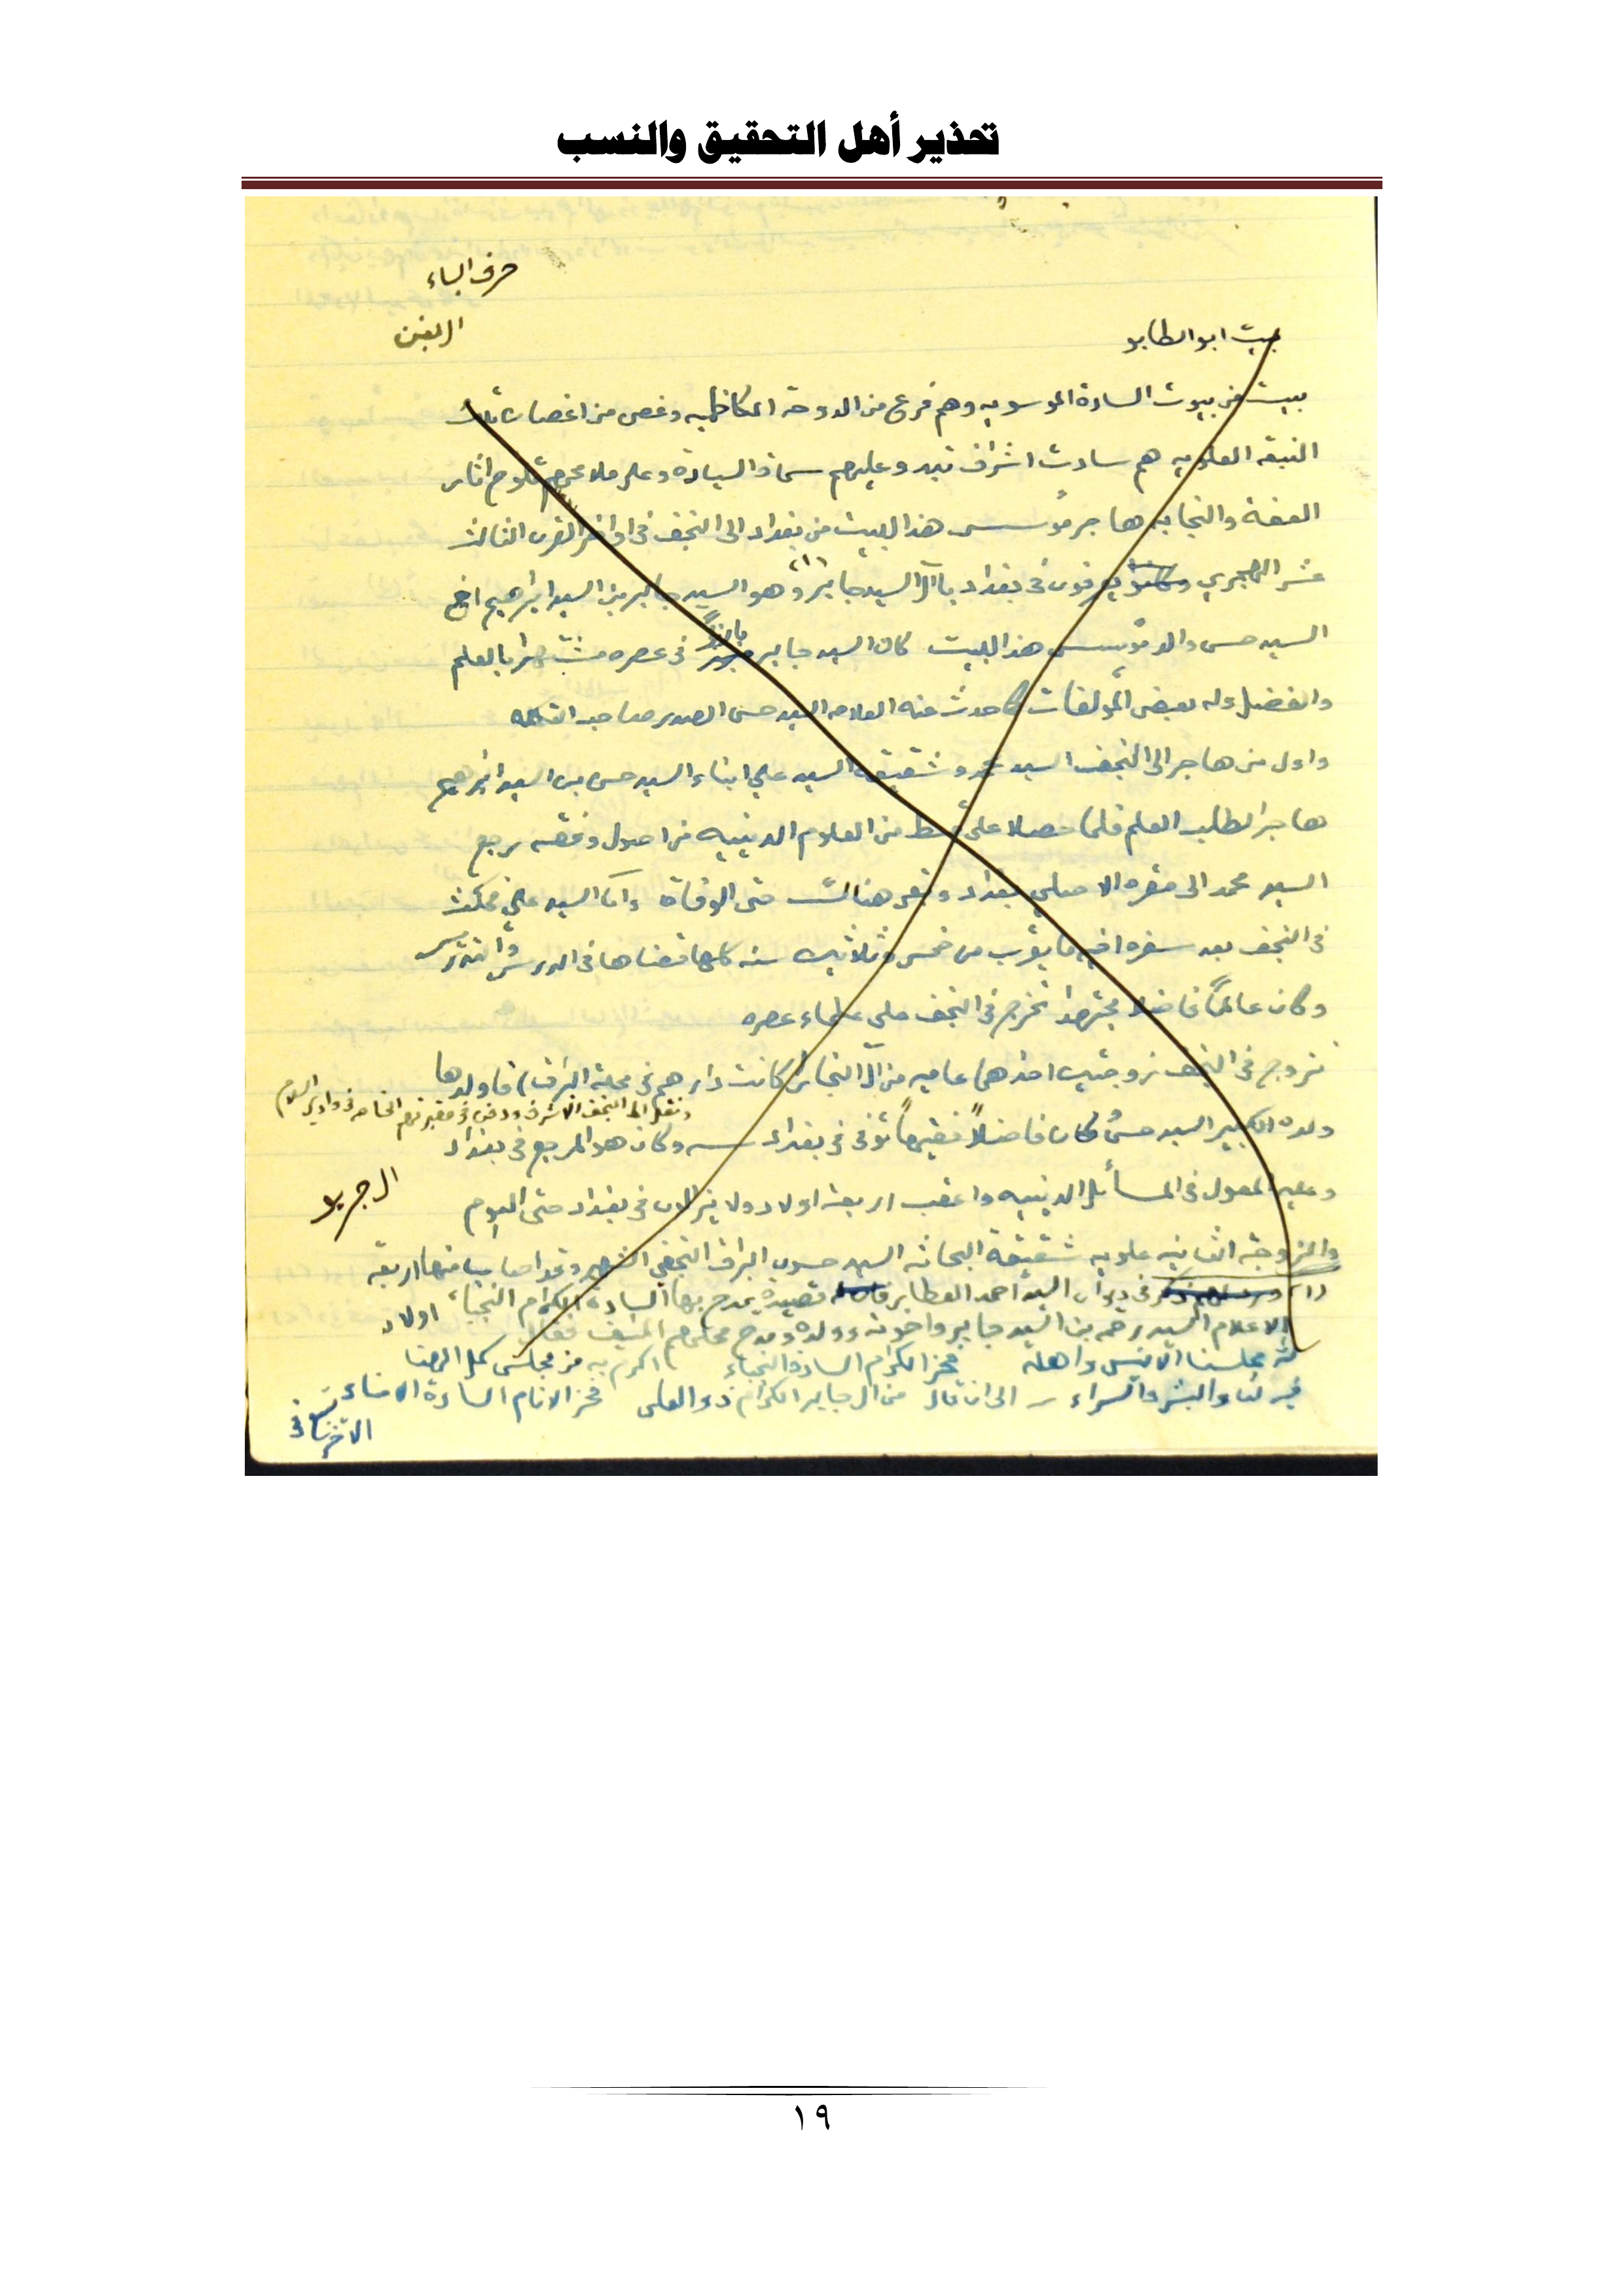 تحذير أهل التحقيق والنسب
حرف الباء
بيت ابو الطابو
بيت من بيوت السادة الموسويه وهم فرع من الدوحة الكاظميه وغصن من اغصان تلك
النبقه العلويه هم سادت اشراف تبدو عليهم سمات السيادة وعلى ملامحهم تلوح اثار
العفة والنجابه هاجر مؤسس هذا البيت من بغداد الى النجف في اواخر القرن الثالث
عشر الهجري يعرفون في بغداد بآل السيد جابر (١) وهو السيد جابر بن السيد ابراهيم اخ
السيد حسن والد مؤسس هذا البيت كان السيد جابر بارزاً في عصره مشتهرا بالعلم
والفضل وله بعض المؤلفات كما حدث عنه العلامه السيد حسن الصدر صاحب التكمله
واول من هاجر الى النجف السيد محمد وشقيقه السيد علي ابناء السيد حسن بن السيد ابراهيم
هاجرا لطلب العلم فلما حصلا على قسط من العلوم الدينيه من اصول وفقه رجع
السيد محمد الى مقره الاصلي بغداد وبقى هناك حتى الوفاة واما السيد علي فمكث
في النجف بعد سفره اخيه ما يقرب من خمس وثلاثين سنه كلها قضاها في الدرس والتدريس
وكان عالماً فاضلا مجتهدا تخرج في النجف على علماء عصره
تزوج في النجف زوجتين احدهما عاميه من آل النجار (كانت دارهم في محلة البراق) فاولدها
ونقل الى النجف الاشرف ودفن في مقبرتهم الخاصه في وادي السلام
ولده الكبير السيد حسن كان فاضلاً فقيهاً توفى في بغداد سـه وكان هو المرجع في بغداد
وعليه المعول في المسائل الدينيه واعقب اربعة اولاد ولا يزالون في بغداد حتى اليوم
ال جريو
والزوجة الثانيه علويه شقيقة البحاثه السيد حسون البراقي النجفي الشهير وقد اصاب منها اربعة
اولاد
(١) في ديوان السيد احمد العطار قصيدة يمدح بها السادة الكرام النجباء
الاعلام السيد رحمه بن السيد جابر واخوته وولده ومدح مجلسهم المنيف فقال
مجلسنا الانيس واهله فخر الكرام السادة النجباء اكرم به من مجلس كمل الهنا
فيه لنا والبشر والسراء ـ الى ان قال من ال جابر الكرام ذو العلى فخر الانام السادة الامناء
١٩